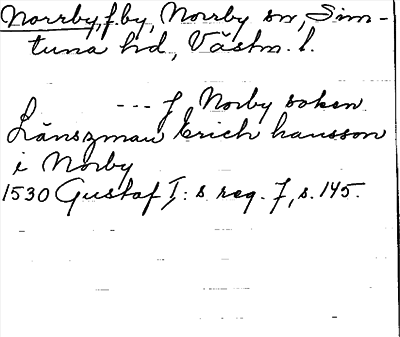 Norrby, f. by, Norrby sn, Sim-
tuna hd., Västm. l.
--- J Norby soken
Länszman Erich hansson
i Norby
1530 Gustaf I:s reg. 7, s. 145.